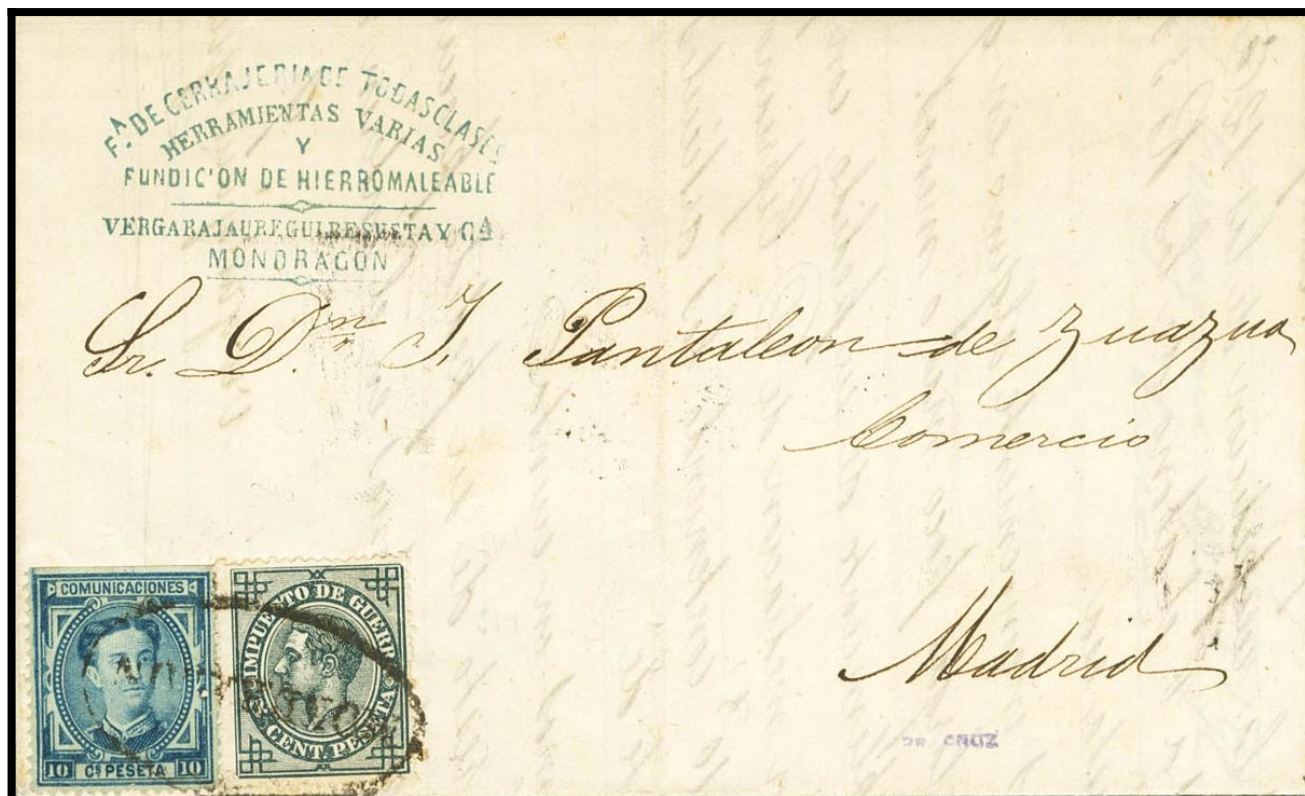 F.A DE CERRAJERIA DE TODAS CLASES
HERRAMIENTAS VARIAS
Y
FUNDICION DE HIERRO MALEABLE
VERGARAJAUREGUI RESUSTA Y CA
MONDRAGON
Sr. Dn. J. Pantaleon de Zuazua
Comercio
Madrid
COMUNICACIONES
10 Cs PESETA 10
IMPUESTO DE GUERRA
5 CENT. PESETA
MONDRAGON
DR CRUZ